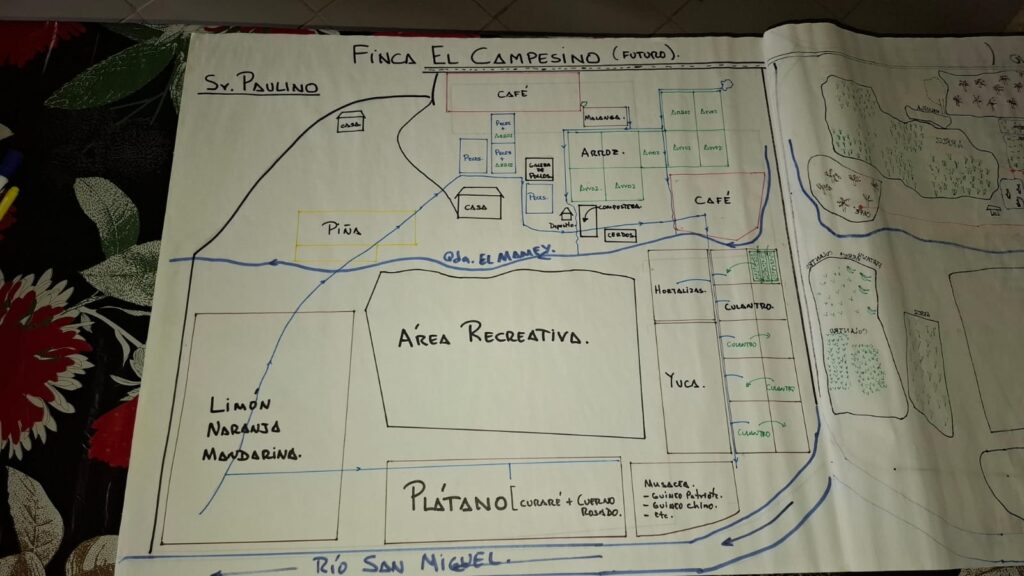 FINCA EL CAMPESINO (FUTURO).
Sr. PAULINO
CASA
CAFÉ
MALANGA
PECES
+
ARROZ
PECES
+ ARROZ
PECES.
GALERA
DE
POLLOS
PECES.
CASA
ARROZ.
ARROZ
ARROZ
ARROZ
ARROZ
ARROZ
ARROZ
ARROZ
COMPOSTERA
Deposito
CERDOS
CAFÉ
PIÑA
Qda. EL MAMEY.
HORTALIZAS
CULANTRO.
CULANTRO
CULANTRO
CULANTRO
YUCA.
ÁREA RECREATIVA.
LIMÓN
NARANJA
MANDARINA.
PLÁTANO [CURARÉ + CUERNO
ROSADO.
MUSACEA.
- GUINEO PATRIOTE.
- GUINEO CHINO.
- ETC.
RÍO SAN MIGUEL.